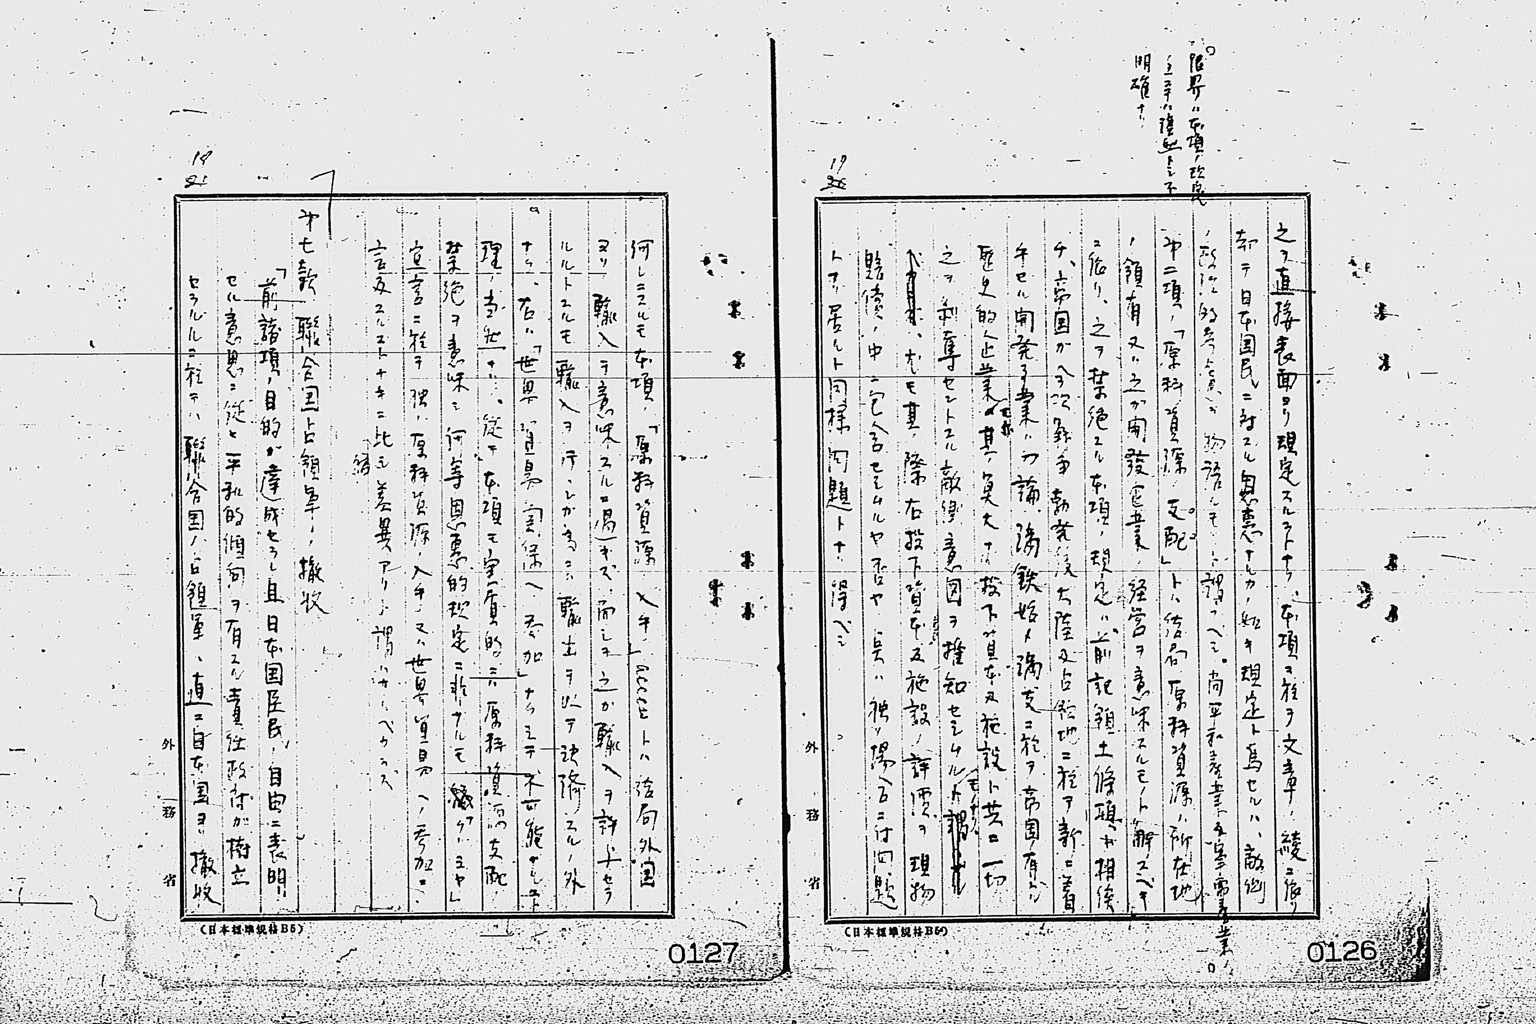 限界ハ本項ノ規定
明確ナリ
之ヲ直接表面ヨリ規定スルコトナク、本項ニ於テ文章ノ綾ニ依リ
却テ日本国民ニ対スル恩恵ナルカ如キ規定ト為セルハ、敵側
ノ政治的考慮ヲ物語ルモノト謂フヘシ。尚平和産業ト軍需産業ノ
第二項ノ「原料資源ノ支配」トハ結局原料資源ノ所在地
ノ領有又ハ之カ開発企業ノ経営ヲ意味スルモノト解スヘキ
ニ依リ、之ヲ禁絶スル本項ノ規定ハ前記領土條項ト相俟
チ、帝国カ今次戦争勃発後大陸及占領地ニ於テ新ニ着
手セル開発事業ハ勿論、満鉄始メ満支ニ於テ帝国ノ有スル
歴史的企業モ其ノ莫大ナル投下資本及施設ト共ニ一切
之ヲ剥奪セントスル敵側ノ意図ヲ推知セシムル
尤モ其ノ際右投下資本及施設ノ評価ヲ現物
賠償ノ中ニ包含セシムルヤ否ヤハ独ノ場合ニ付問題
トナリ居ルト同様問題トナリ得ヘシ
外務省
(日本標準規格B5)
0126
何レニスルモ本項ノ「原料資源ノ入手」accessトハ結局外国
ヨリノ輸入ヲ意味スルニ過キス、而シテ之カ輸入ヲ許サレセラ
ルルトスルモ輸入ヲ行ハンカ為ニハ輸出ヲ以テ決済スルノ外
ナク、右ハ「世界貿易関係ヘノ参加」ナクシテ不可能ナルコト
理ノ当然ナリ、従テ本項モ実質的ニハ原料資源ノ支配
禁絶ヲ意味シ何等恩恵的規定ニ非サルモ
宣言ニ於テ独ノ原料資源ノ入手又ハ世界貿易ヘノ参加ニ
言及スルコトナキニ比シ差異アリト謂ハサルヘカラス
第七款 聯合国占領軍ノ撤収
「前諸項ノ目的カ達成セラレ且日本国国民ノ自由ニ表明
セル意思ニ従ヒ平和的傾向ヲ有スル責任政府カ樹立
セラルルニ於テハ聯合国ノ占領軍ハ直ニ日本国ヨリ撤収
外務省
(日本標準規格B5)
0127